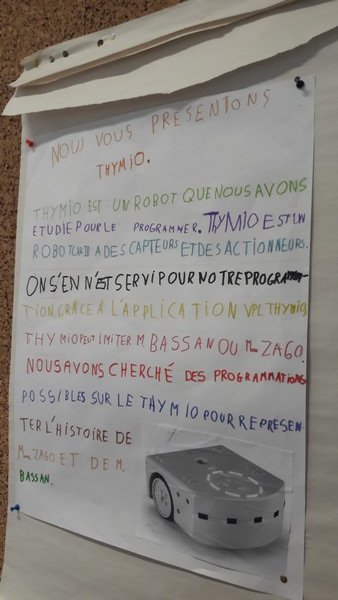 NOUS VOUS PRESENTONS
THYMIO.
THYMIO EST UN ROBOT QUE NOUS AVONS
ETUDIE POUR LE PROGRAMMER. THYMIO EST UN
ROBOT A DES CAPTEURS ET DES ACTIONNEURS.
ON S'EN N'EST SERVI POUR NOTRE PROGRAM-
TION GRÂCE À L'APPLICATION VPL THYMIO,
THYMIO PEUT IMITER M. BASSAN OU Mme ZAGO.
NOUS AVONS CHERCHÉ DES PROGRAMMATIONS
POSSIBLES SUR LE THYMIO POUR REPRESEN-
TER L'HISTOIRE DE
Mme ZAGO ET DE M.
BASSAN.